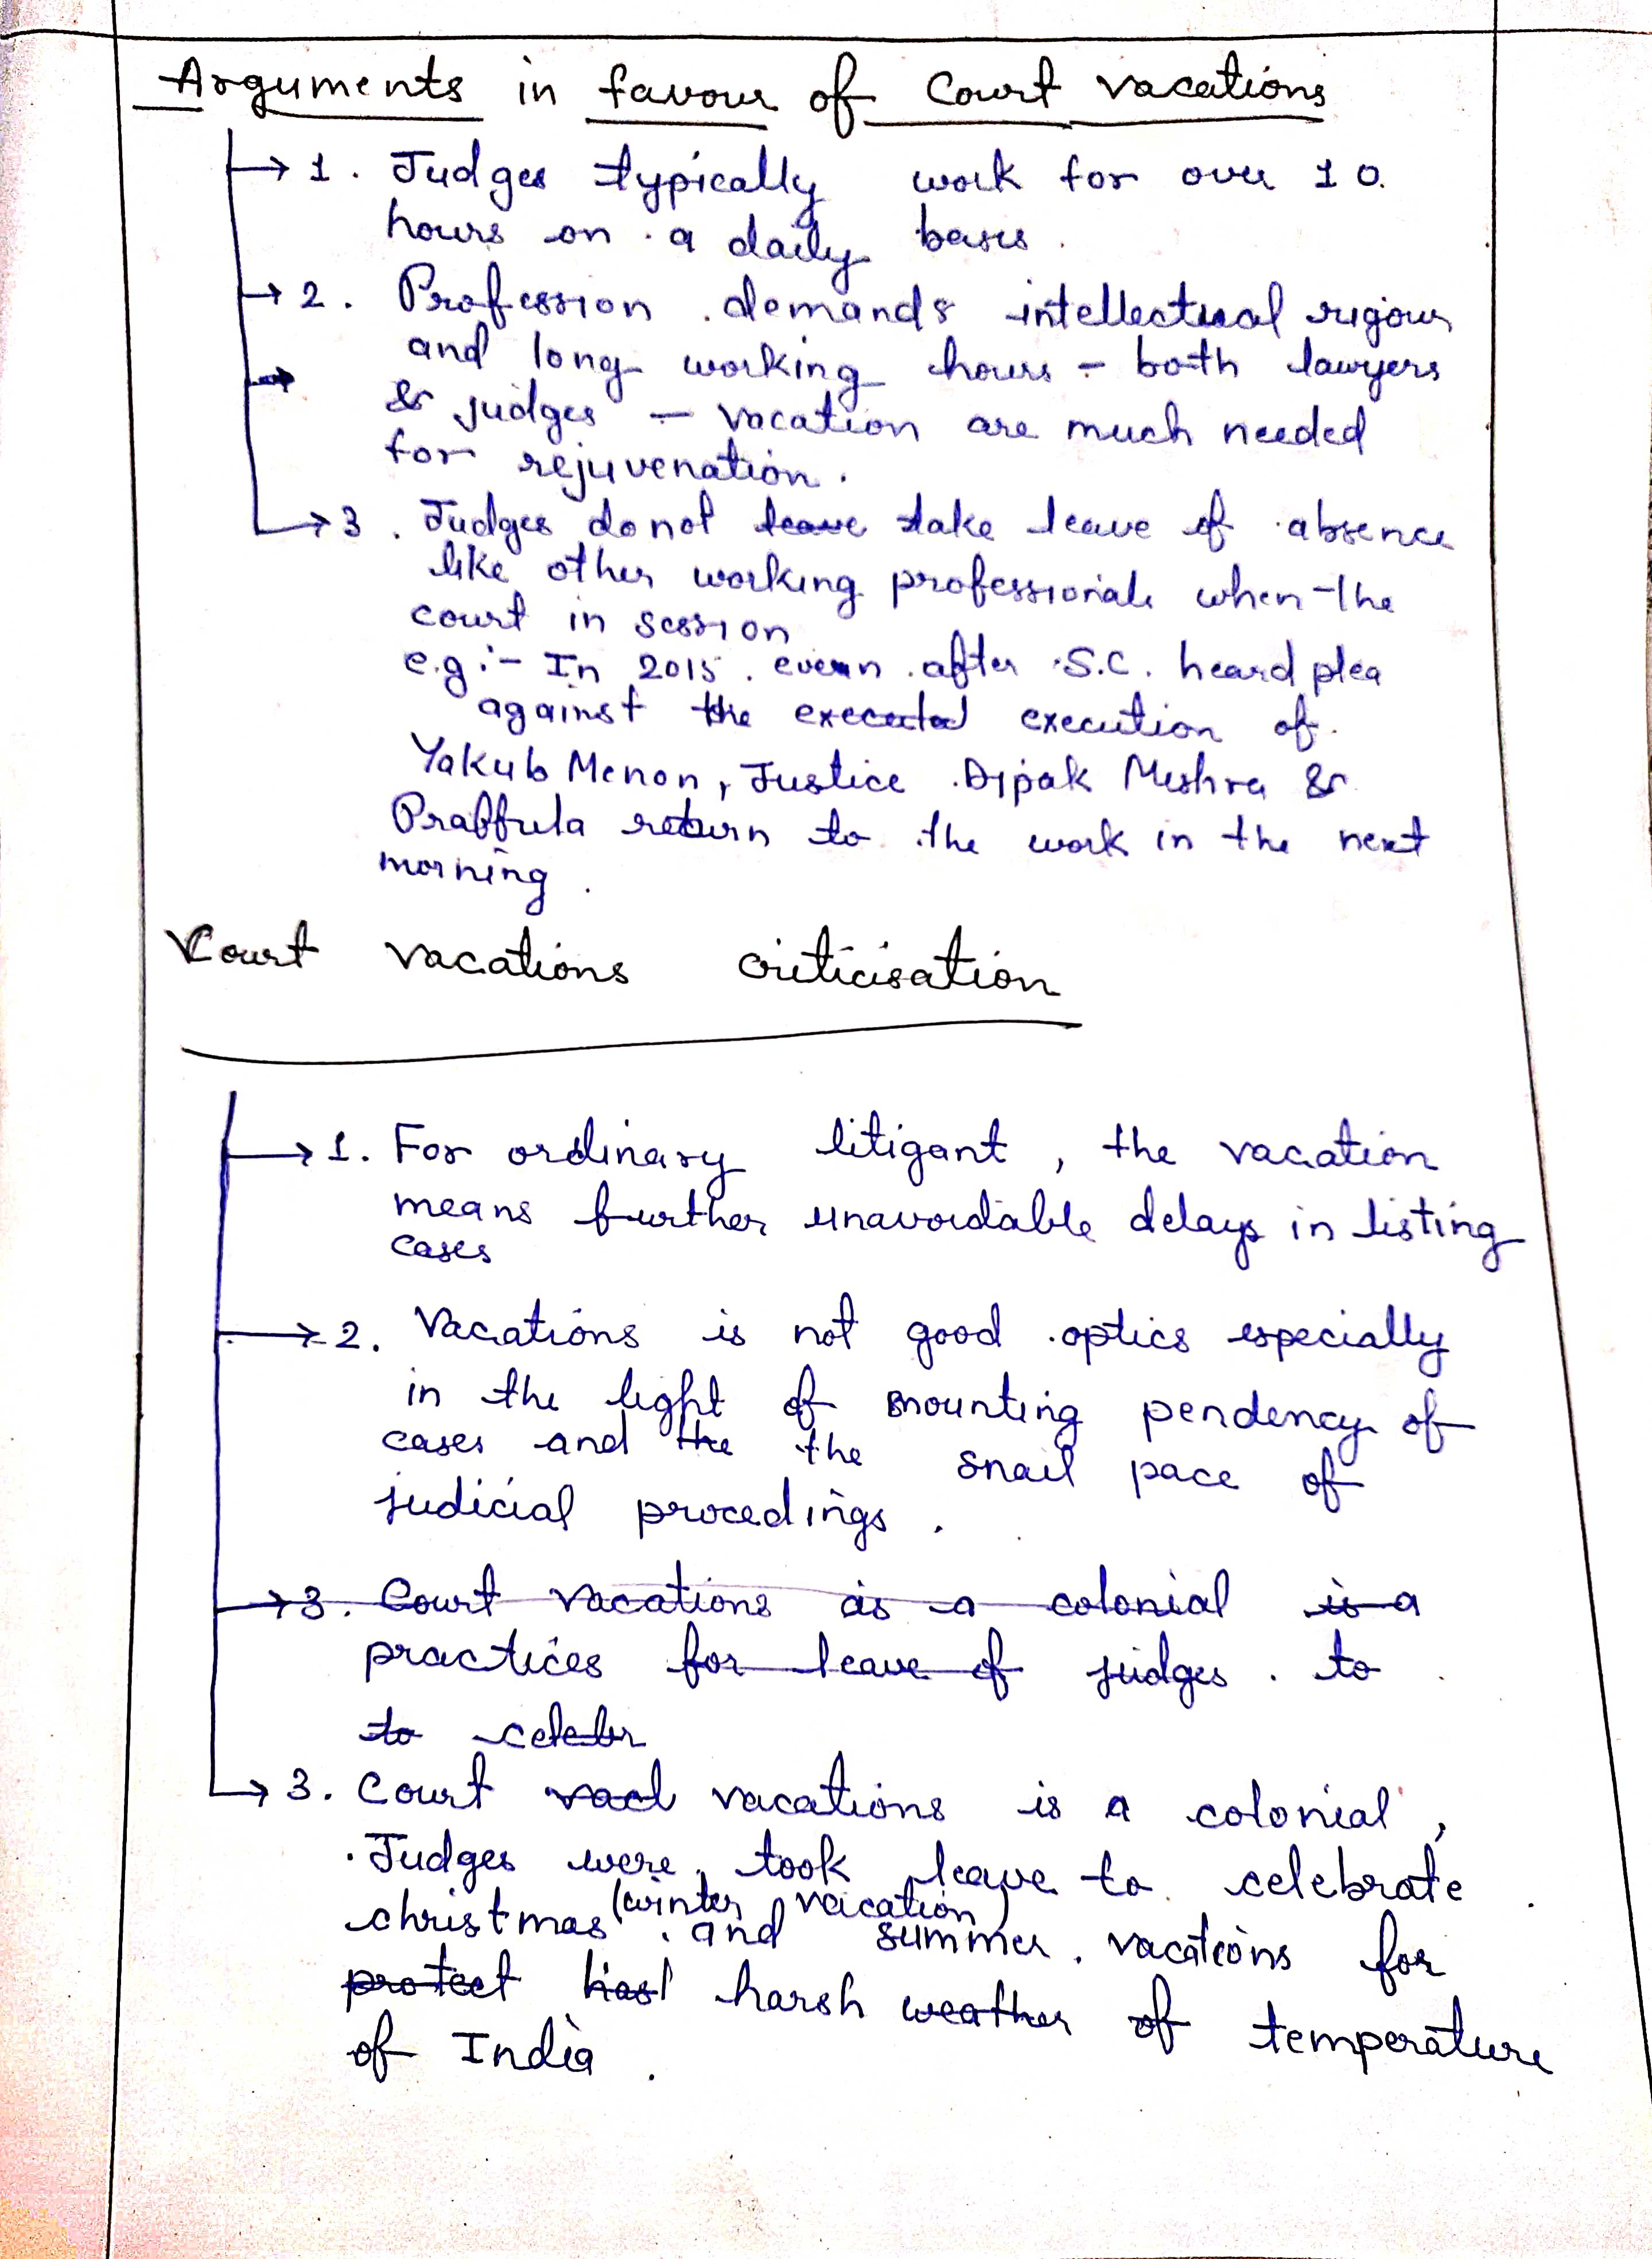 Arguments in favour of Court vacations
1. Judges typically work for over 10
hours on a daily basis.
2. Profession demands intellectual rigour
and long working hours - both lawyers
& judges - vacation are much needed
for rejuvenation.
3. Judges do not leave take leave of absence
like other working professionals when the
court in session
e.g:- In 2015. even after S.C. heard plea
against the executed execution of
Yakub Menon, Justice Dipak Mishra &
Praffula return to the work in the next
morning.
Court vacations criticisation
1. For ordinary litigant, the vacation
means further unavoidable delays in listing
cases
2. Vacations is not good optics especially
in the light of mounting pendency of
cases and the the snail pace of
judicial procedings.
3. Court vacations is a colonial is a
practices for leave of judges. to
to celebr
3. Court vacations is a colonial,
Judges were, took leave to celebrate
christmas (winter vacation) and summer vacations for
protect harsh weather of temperature
of India.